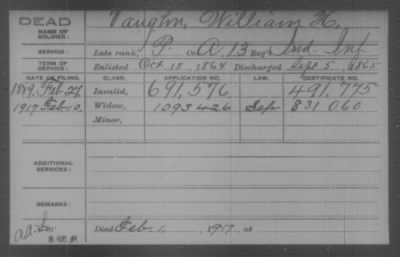 DEAD Vaughn, William H.
NAME OF SOLDIER:
SERVICE: Late rank, P. Co. A, 13 Reg't Ind. Inf
TERM OF SERVICE: Enlisted Oct. 18, 1864 Discharged Sept. 5, 1865
DATE OF FILING. CLASS. APPLICATION NO. LAW. CERTIFICATE NO.
1889, Feb 27 Invalid, 691,576 491,775
1917 Feb 10. Widow, 1093426 831060
Minor,
ADDITIONAL SERVICES:
REMARKS:
Died Feb. 1, 1917, at